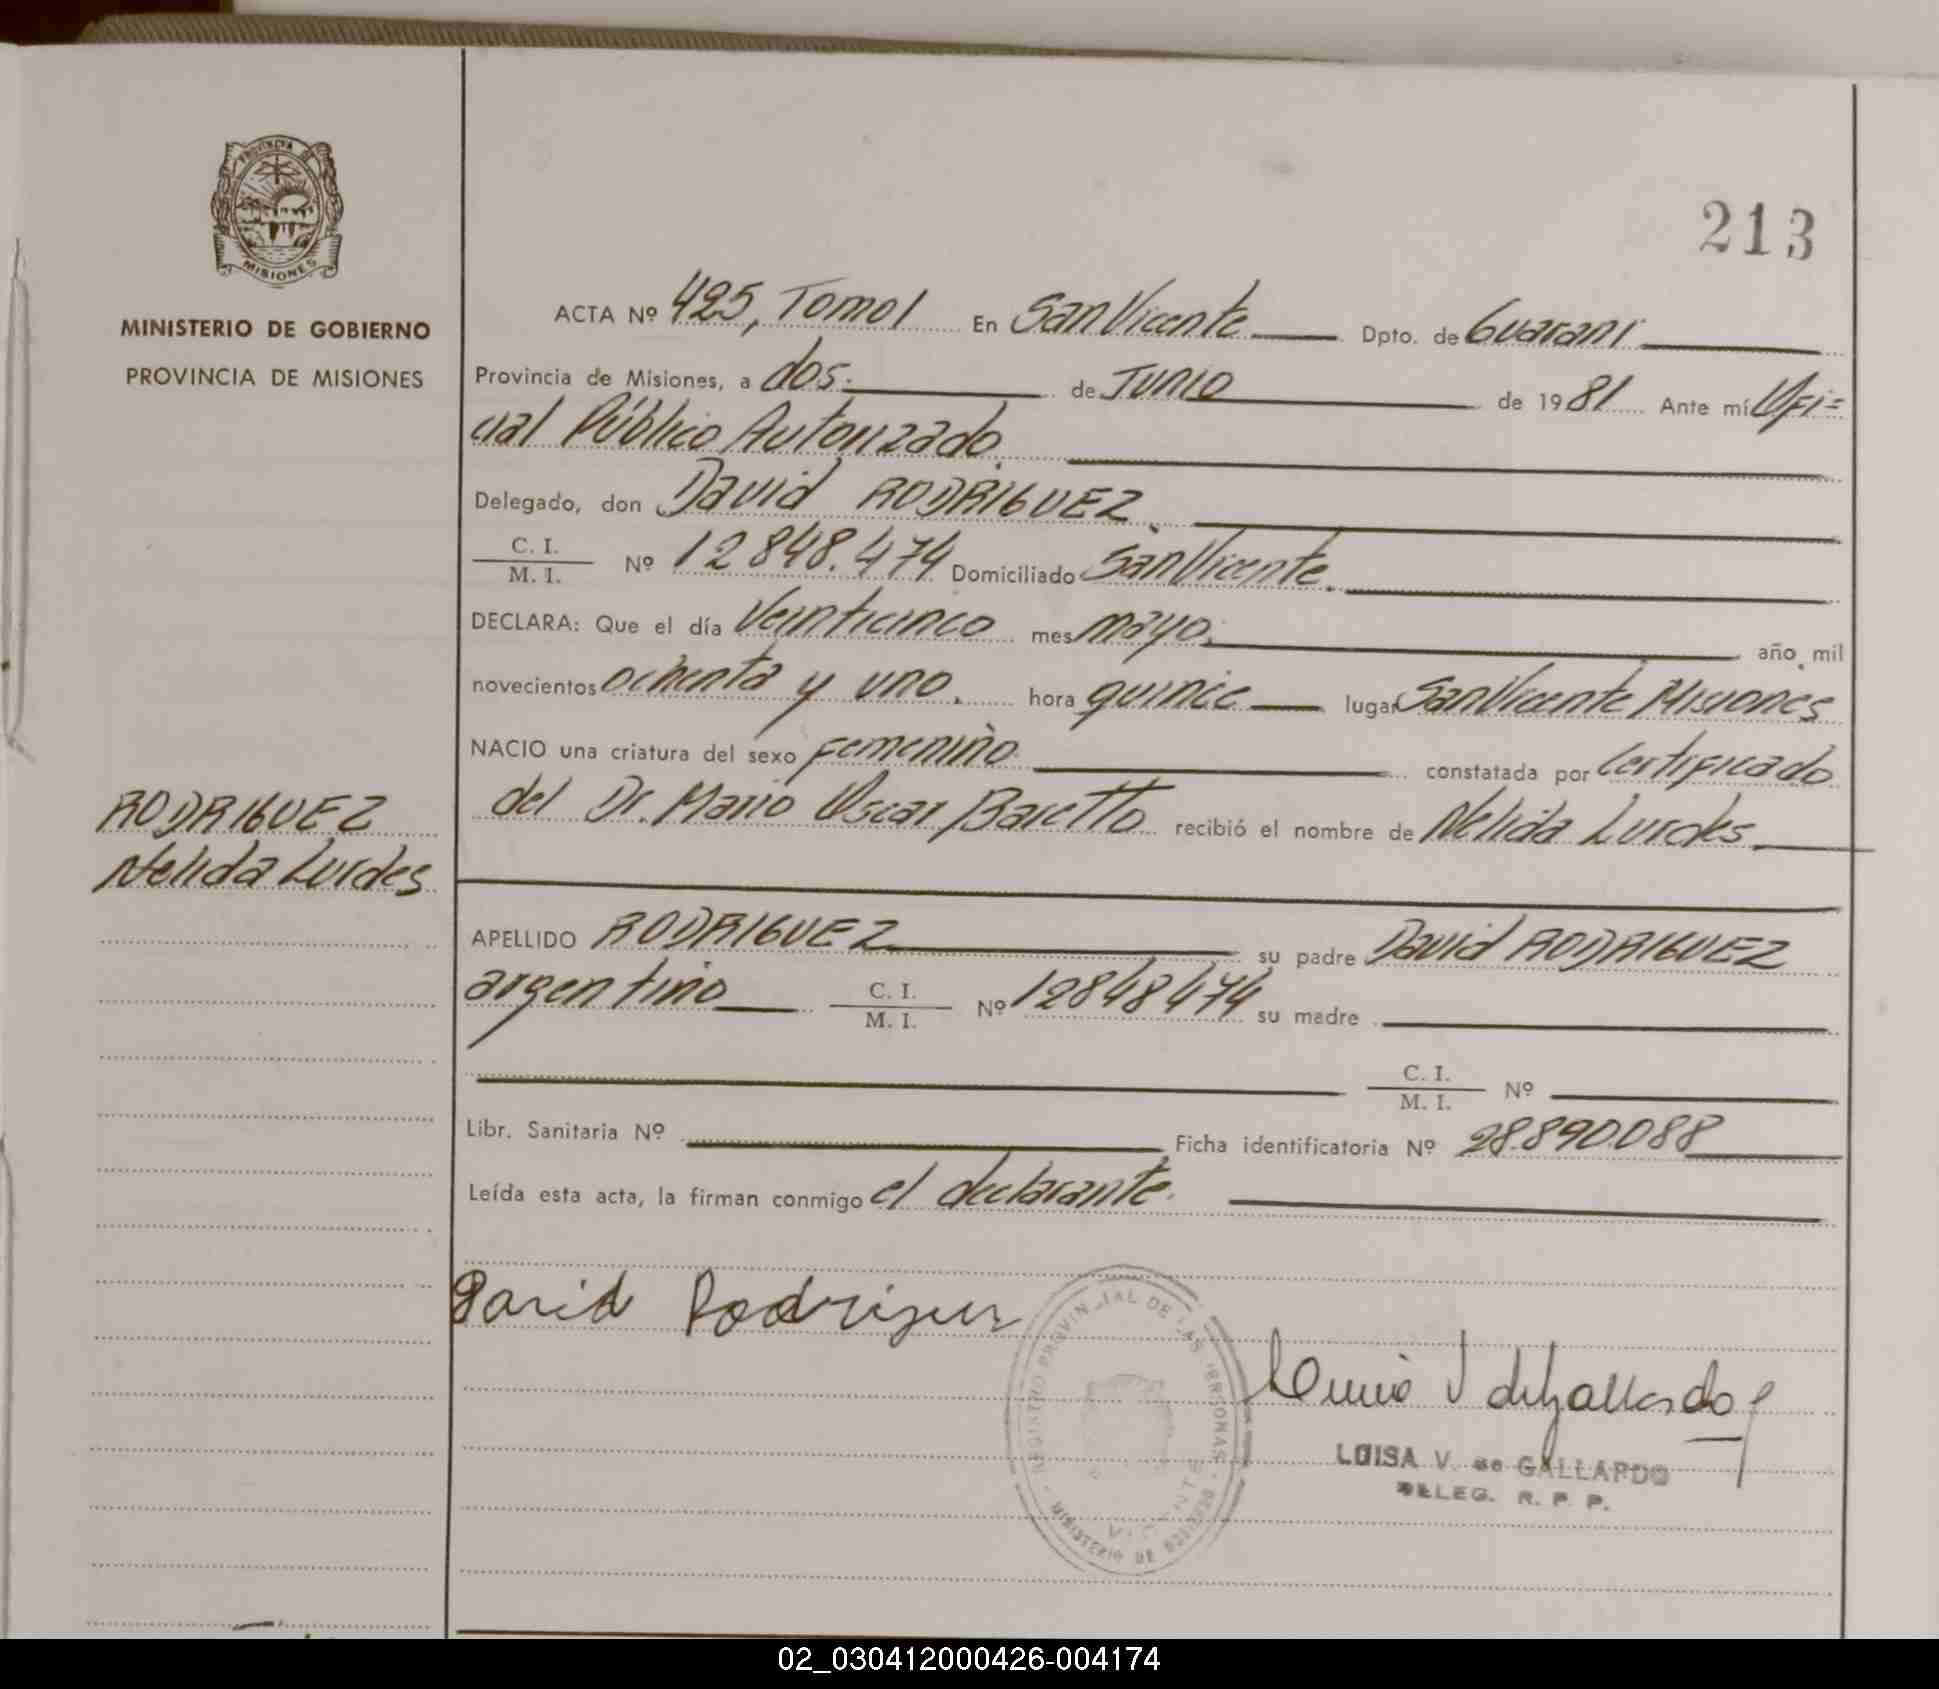 PROVINCIA DE
MISIONES
MINISTERIO DE GOBIERNO
PROVINCIA DE MISIONES
213
ACTA Nº 425, Tomo I En San Vicente Dpto. de Guaraní
Provincia de Misiones, a dos. de Junio de 1981 Ante mí Ofi=
cial Público Autorizado.
Delegado, don David RODRIGUEZ.
C. I.
M. I. Nº 12848.474 Domiciliado San Vicente.
DECLARA: Que el día Veinticinco mes mayo. año mil
novecientos ochenta y uno. hora quince lugar San Vicente Misiones
NACIO una criatura del sexo femenino constatada por Certificado
del Dr. Mario Oscar Baretto recibió el nombre de Nelida Lurdes.
RODRIGUEZ
Nelida Lurdes
APELLIDO RODRIGUEZ su padre David RODRIGUEZ
argentino C. I.
M. I. Nº 12848474 su madre
C. I.
M. I. Nº
Libr. Sanitaria Nº Ficha identificatoria Nº 28.890.088
Leída esta acta, la firman conmigo el declarante.
David Rodriguez
REGISTRO PROVINCIAL DE LAS PERSONAS
MINISTERIO DE GOBIERNO
VICENTE
V de Gallardo
LUISA V. de GALLARDO
DELEG. R. P. P.
02_030412000426-004174